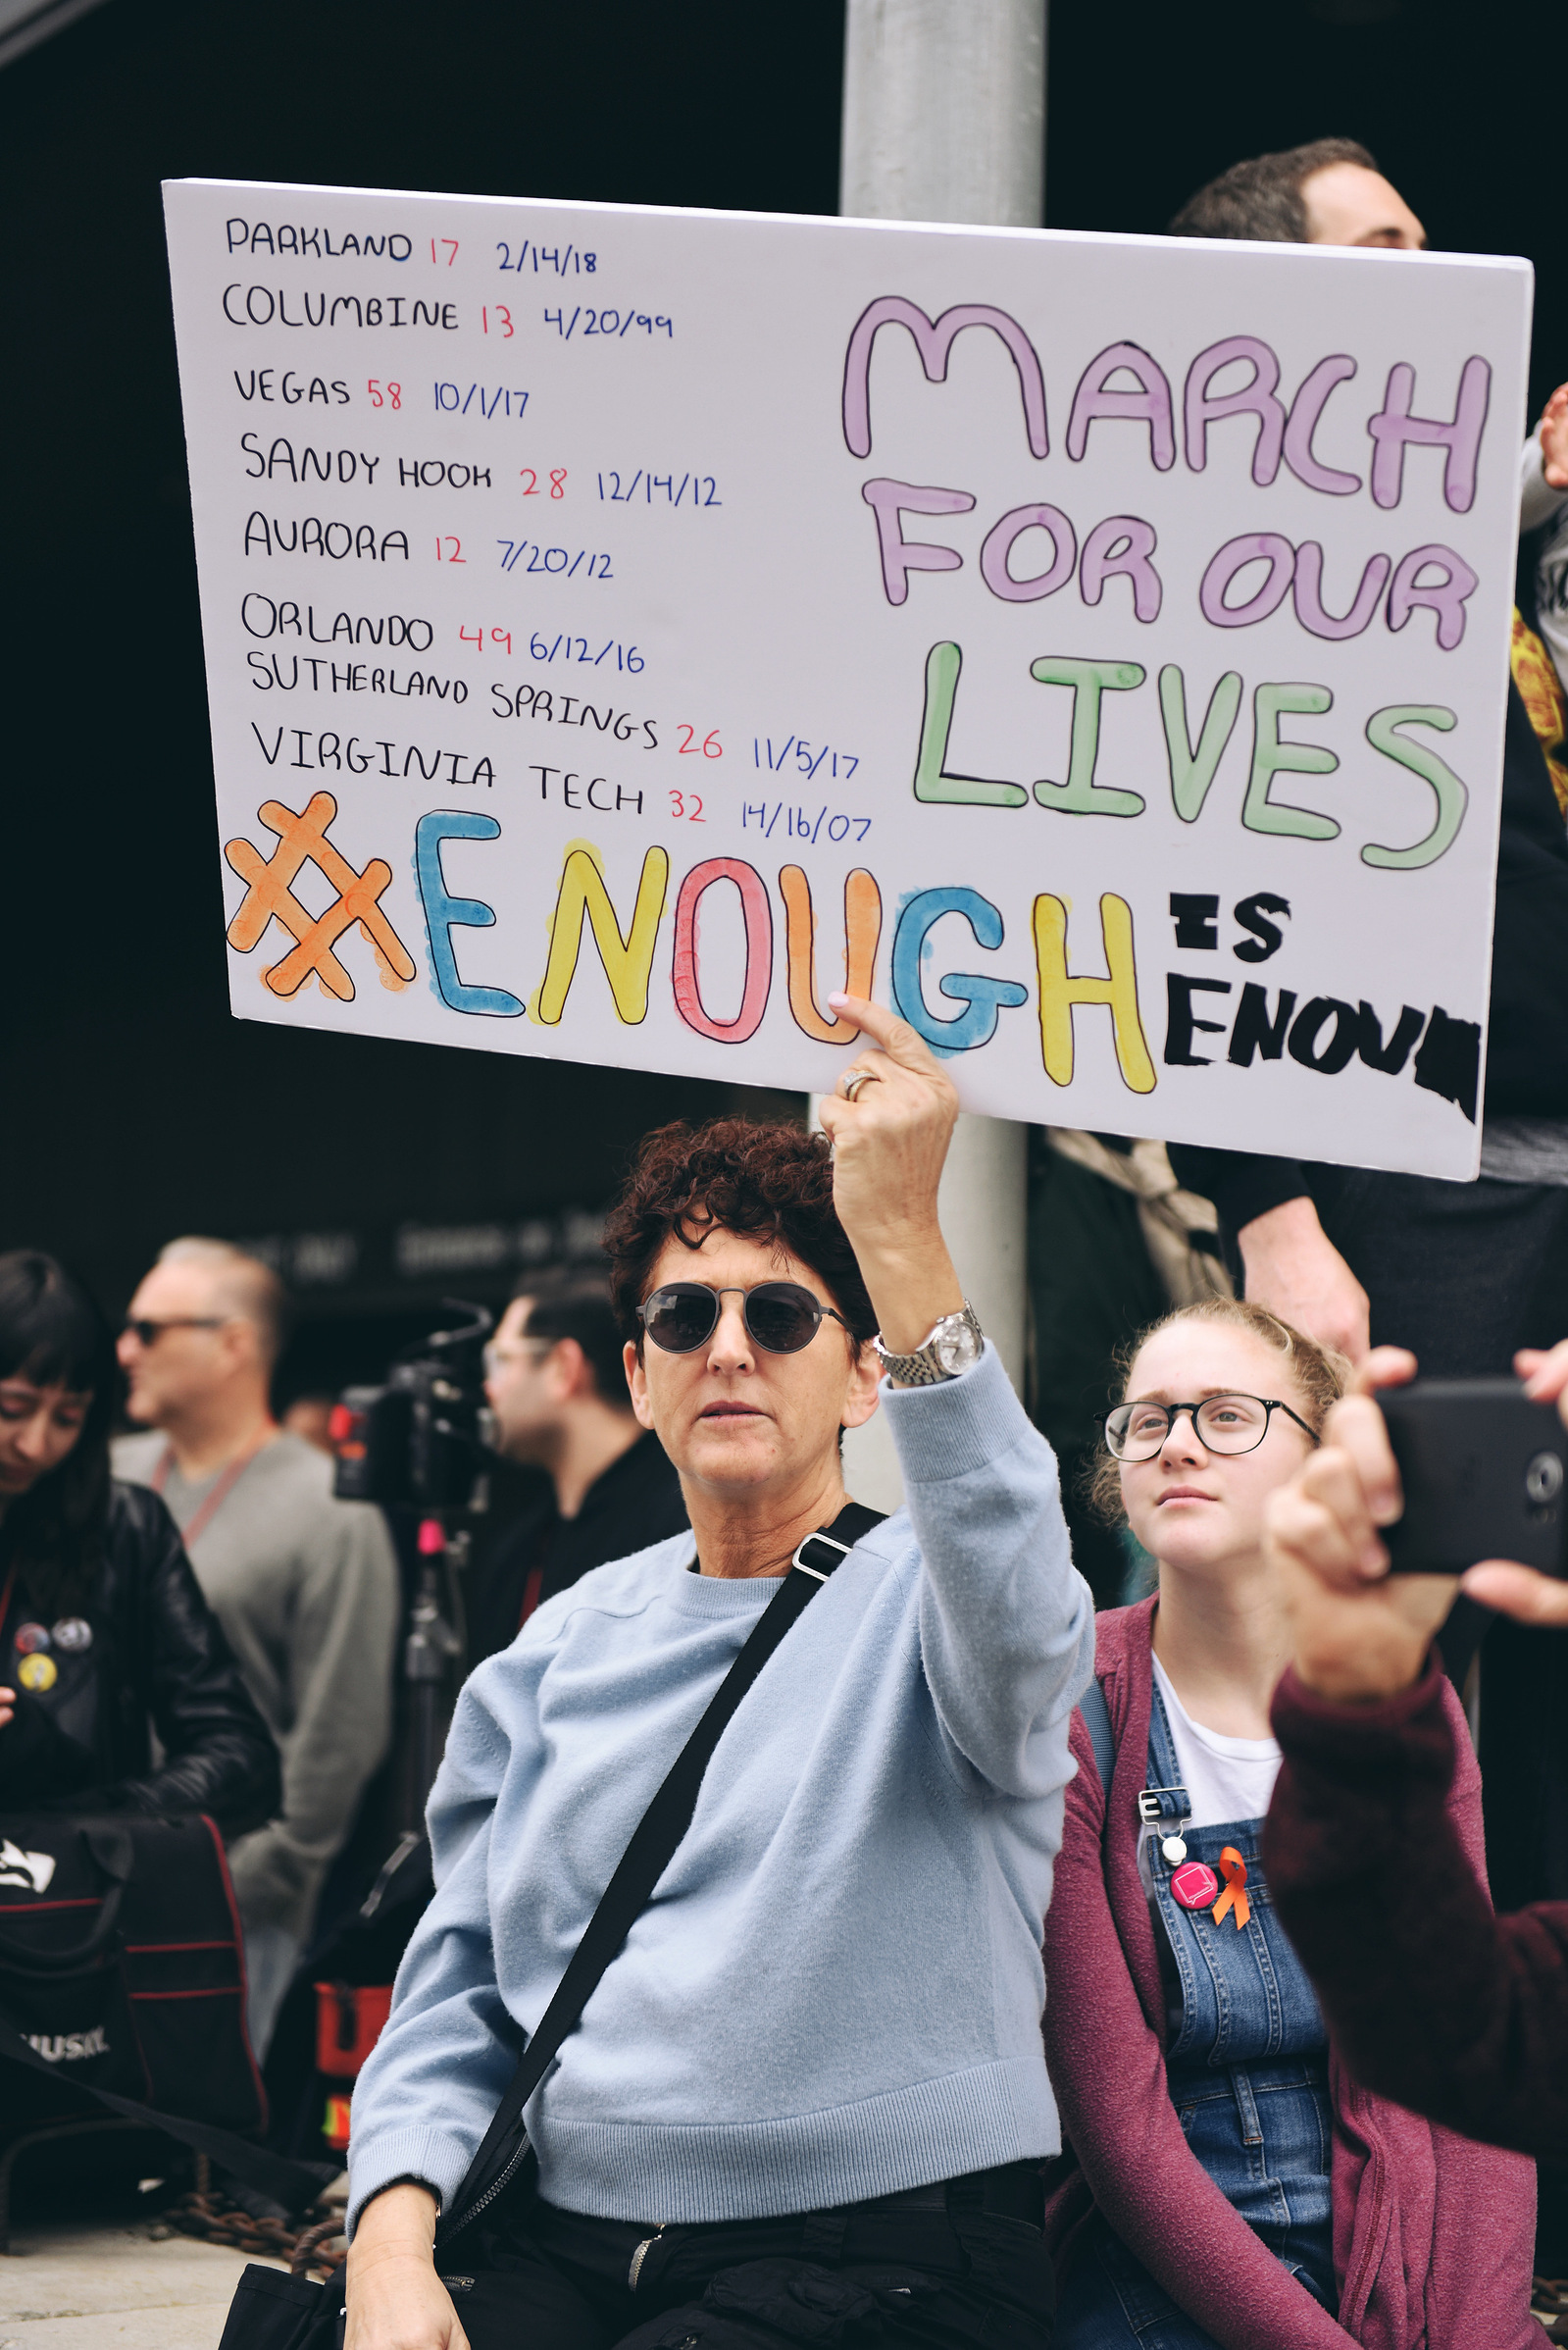 PARKLAND 17 2/14/18
COLUMBINE 13 4/20/99
VEGAS 58 10/1/17
SANDY HOOK 28 12/14/12
AURORA 12 7/20/12
ORLANDO 49 6/12/16
SUTHERLAND SPRINGS 26 11/5/17
VIRGINIA TECH 32 14/16/07
MARCH
FOR OUR
LIVES
#ENOUGH
IS
ENOU
HUSKY